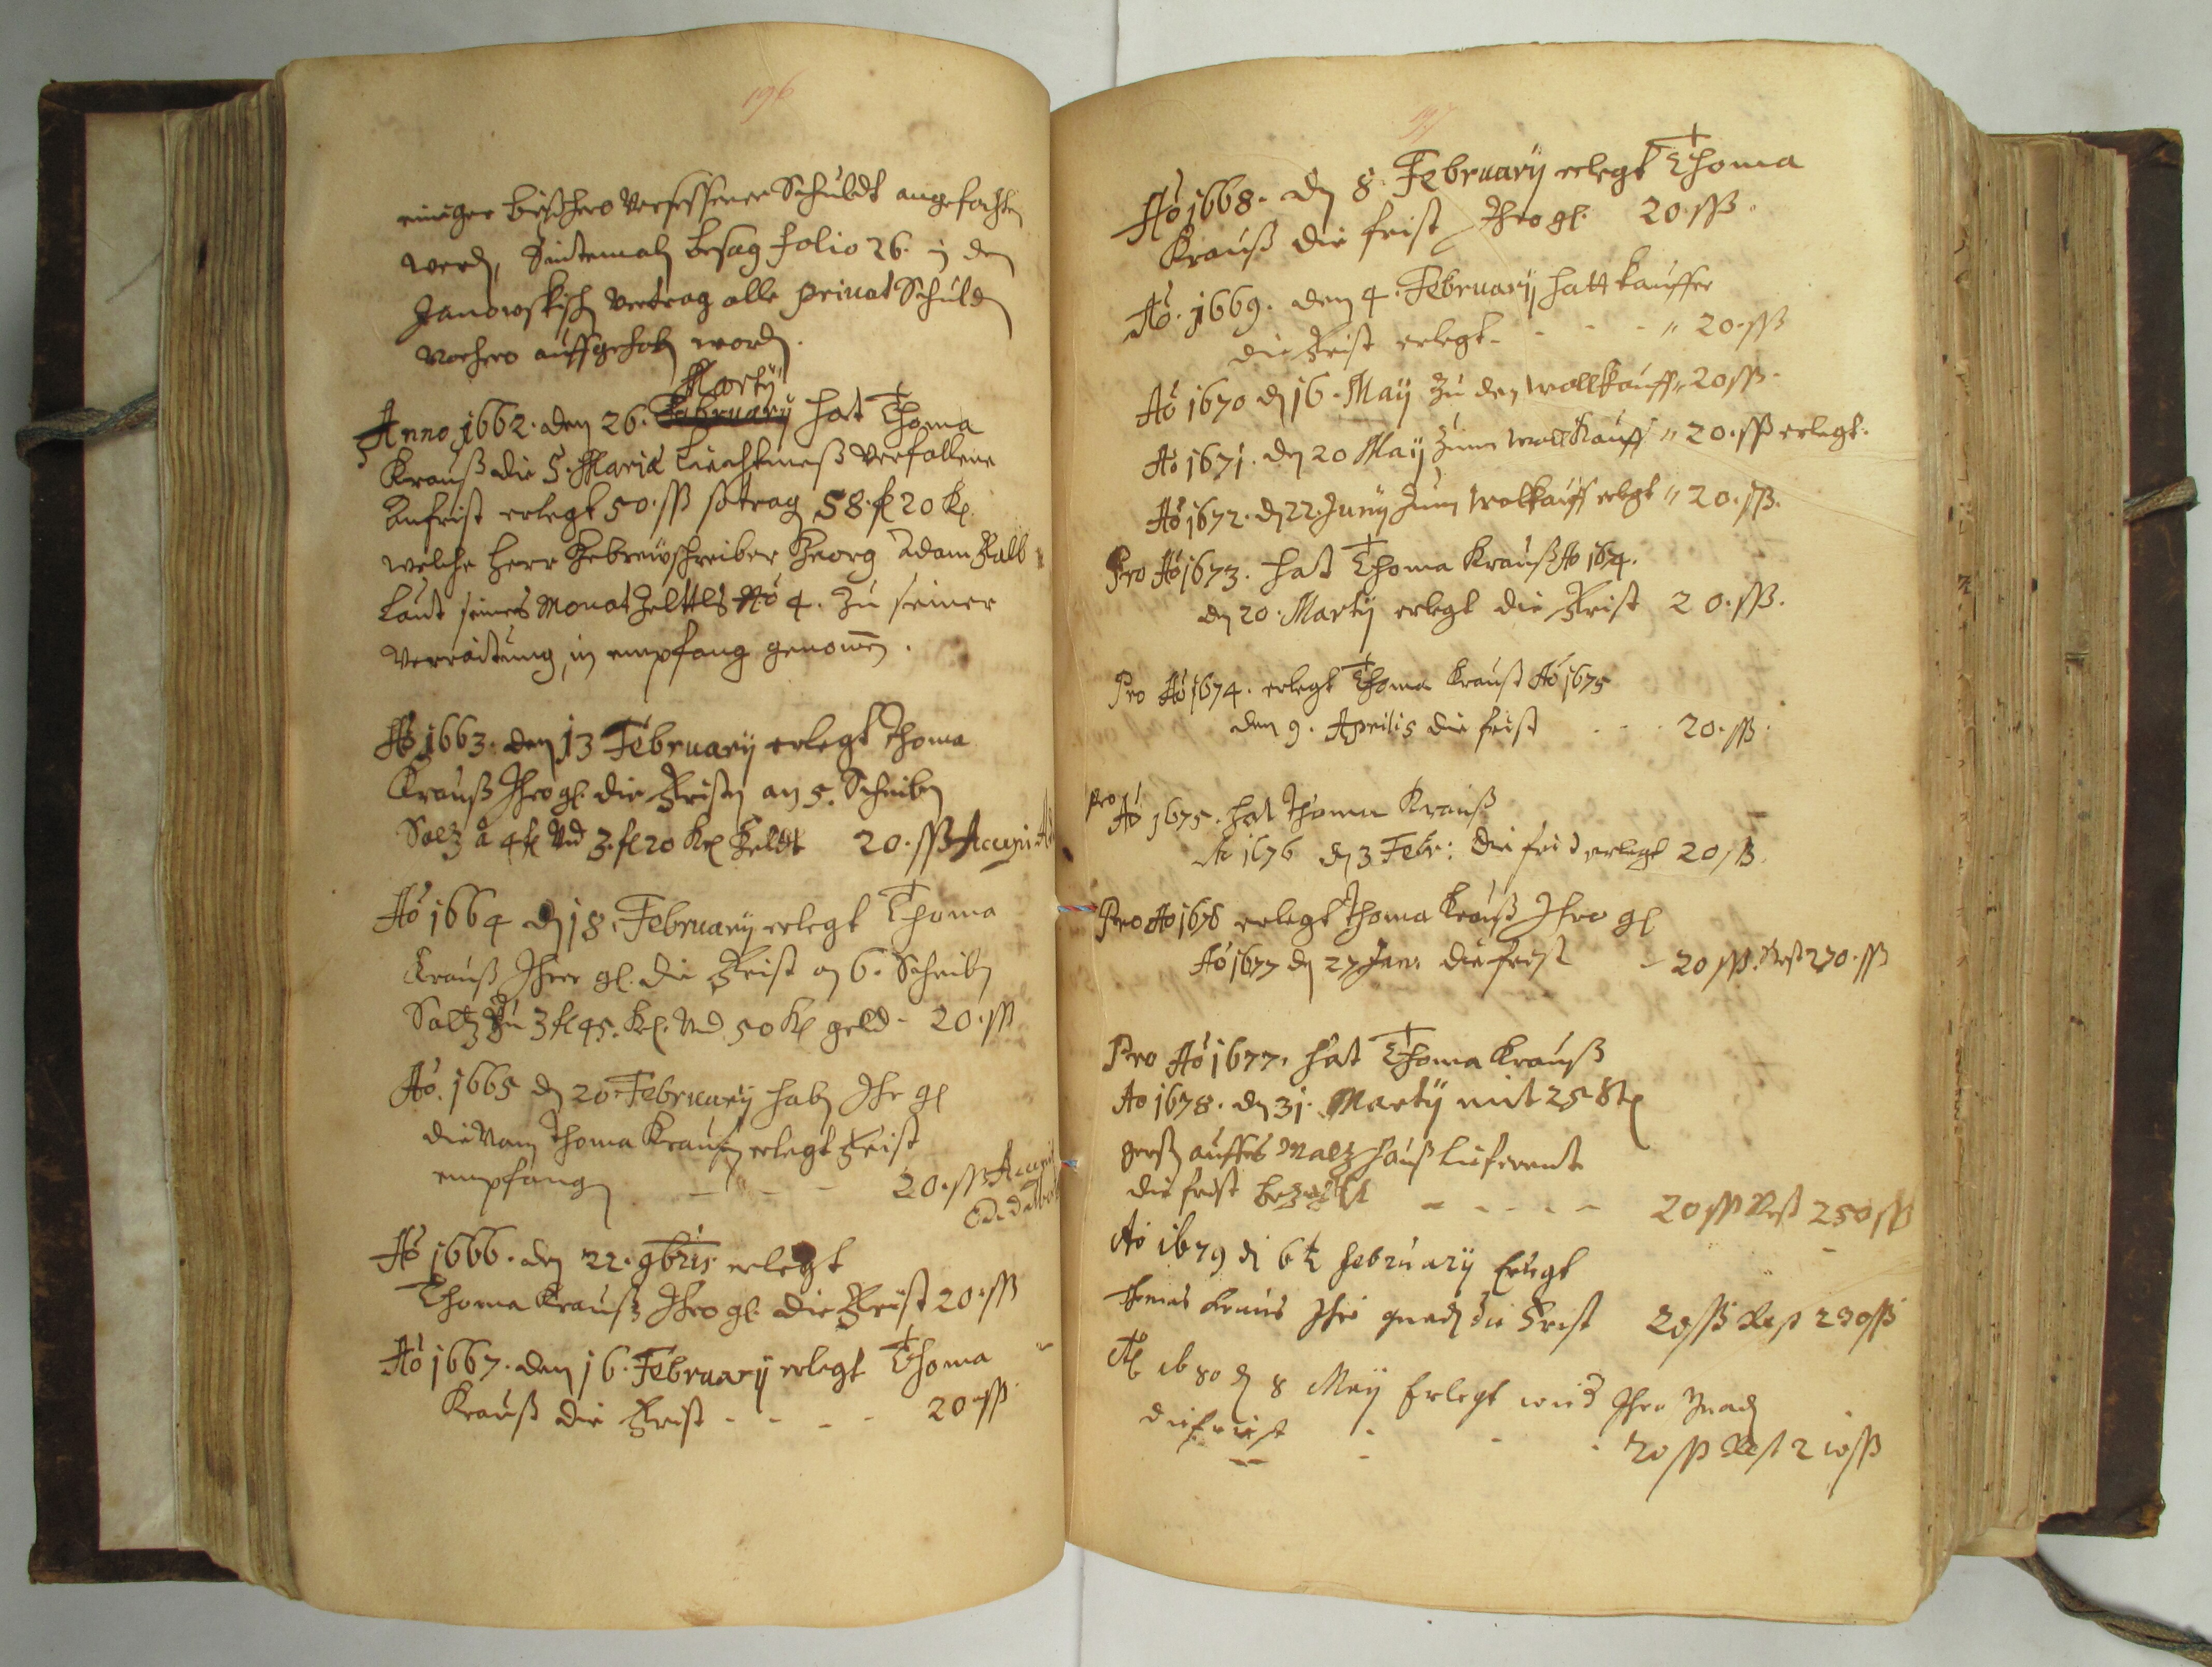 196
einiger bißhero versessener Schuldt angefochten
werdn, Sintemaln besag folio 26. in den
Janowskischn Vertrag alle privat Schulden
vorhero auffgehobn wordn.
Marty
Anno 1662. den 26. February hat Thoma
Krauß die 5. Mariæ Liechtmeß verfallene
Anfrist erlegt 50. ßß so trag 58. fl 20 kr
welche Herr Gebrewschreiber Georg Adam Kalb
Laut seines Monat Zelttls No 4. Zu seiner
verraitung in empfang genomen.
Ao 1663. den 13 February erlegt Thoma
Krauß Ihro gl. die Fristn an 5. Scheiben
Saltz â 4 fl Vnd 3. fl 20 kr Geldt 20. ßß Accepi
Ao 1664 dn 18. February erlegt Thoma
Krauß Ihrer gl. die Frist an 6. Scheibn
Saltz Zu 3 fl 45. kr. Vnd 50 kr geld - 20. ßß
Ao. 1665 dn 20. February habn Ihr gl
die Vom Thoma Kraußn erlegt Frist
empfangn - - - 20. ßß Accepi
Ao 1666. den 22. 9bris erlegt
Thoma Krauß Ihro gl. die Frist 20. ßß
Ao 1667. den 16. February erlegt Thoma
Krauß die Frist - - - - 20 ßß
197
Ao 1668. dn 8. February erlegt Thoma
Krauß die frist Ihro gl. 20. ßß.
Ao. 1669. den 4. February hatt kauffer
die Frist erlegt - - - " 20. ßß
Ao 1670 dn 16. May Zu den Wollkauff " 20 ßß.
Ao 1671. dn 20 May Zum Wollkauff " 20. ßß erlegt.
Ao 1672. dn 22. Juny Zum Wolkauff erlegt " 20. ßß.
Pro Ao 1673. hat Thoma Krauß Ao 1674.
dn 20. Marty erlegt die Frist 20. ßß.
Pro Ao 1674. erlegt Thoma Krauß Ao 1675
den 9. Aprilis die frist - - - 20. ßß.
pro Ao 1675. hat Thoma Krauß
Ao 1676 dn 3 Febr: die frist erlegt 20 ßß.
Pro Ao 1676 erlegt Thoma Krauß Ihro gl
Ao 1677 dn 27 Jan. die frist - 20 ßß. Rest 270. ßß
Pro Ao 1677. hat Thoma Krauß
Ao 1678. dn 31. Marty mit 25 Str
gerstn auffs Maltzhauß Lieferent
die frist bezahlt - - - - - 20 ßß Rest 250 ßß
Ao 1679 dn 6t February Erlegt
Thomas Kraus Ihro gnadn die Frist 20 ßß Rest 230 ßß
Ao 1680 dn 8 May Erlegt Ihro Gnadn
die frist - - - 20 ßß Rest 210 ßß